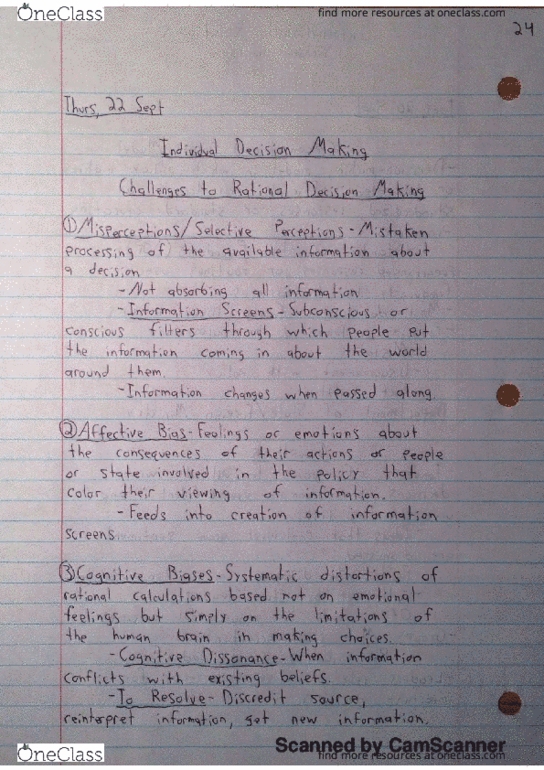 OneClass
find more resources at oneclass.com
24
Thurs, 22 Sept
Individual Decision Making
Challenges to Rational Decision Making
① Misperceptions/Selective Perceptions - Mistaken
processing of the available information about
a decision
- Not absorbing all information
- Information Screens - Subconscious or
conscious filters through which people put
the information coming in about the world
around them.
- Information changes when passed along
② Affective Bias - Feelings or emotions about
the consequences of their actions or people
or state involved in the policy that
color their viewing of information.
- Feeds into creation of information
screens
③ Cognitive Biases - Systematic distortions of
rational calculations based not on emotional
feelings but simply on the limitations of
the human brain in making choices.
- Cognitive Dissonance - When information
conflicts with existing beliefs.
- To Resolve - Discredit source,
reinterpret information, get new information.
Scanned by CamScanner
OneClass
find more resources at oneclass.com